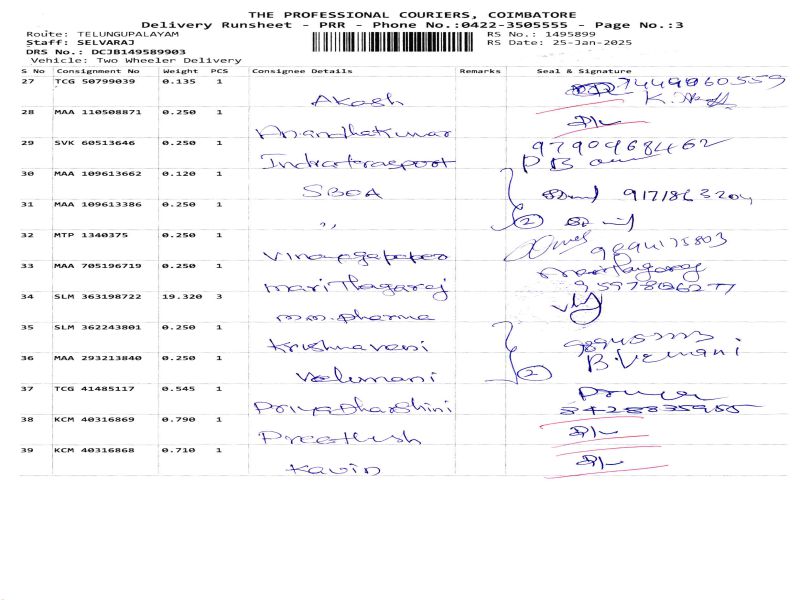 THE PROFESSIONAL COURIERS, COIMBATORE
Delivery Runsheet - PRR - Phone No.:0422-3505555 - Page No.:3
Route: TELUNGUPALAYAM RS No.: 1495899
Staff: SELVARAJ RS Date: 25-Jan-2025
DRS No.: DCJB149589903
Vehicle: Two Wheeler Delivery
S No Consignment No Weight PCS Consignee Details Remarks Seal & Signature
27 TCG 50799039 0.135 1
Akash
28 MAA 110508871 0.250 1
Anandhakumar
29 SVK 60513646 0.250 1 9790968462
Indiratrasport
30 MAA 109613662 0.120 1
SBOA
31 MAA 109613386 0.250 1
,, 2
32 MTP 1340375 0.250 1
Vinayagapaper
33 MAA 705196719 0.250 1 Marithagaraj
Marithagaraj
34 SLM 363198722 19.320 3
m.m.pharma
35 SLM 362243801 0.250 1
Krishnaveni
36 MAA 293213840 0.250 1 B.Vemani
Velumani 2
37 TCG 41485117 0.545 1
PriyaDharshini
38 KCM 40316869 0.790 1
Preethish
39 KCM 40316868 0.710 1
Kavin